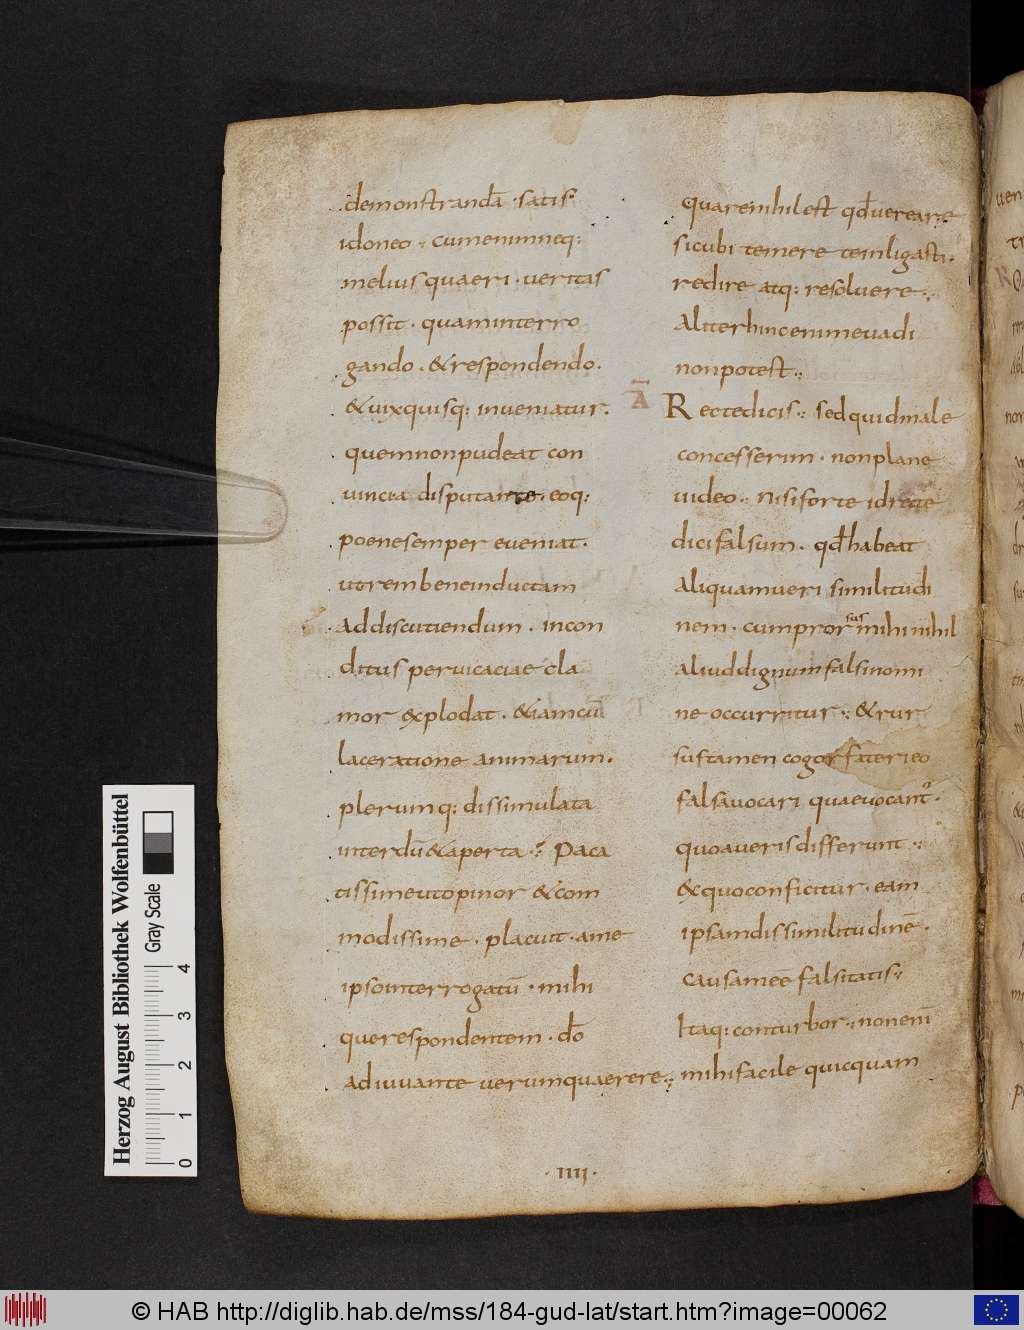 demonstrandā · satis
idoneo · cumenimneq:
melius quaeri · ueritas
possit · quaminterro
gando · &respondendo.
&uixquisq: inueniatur.
quemnonpudeat con
uinci a disputante · eoq:
poenesemper eueniat.
utrembeneinductam
addiscutiendum · incon
ditus peruicaciae cla
mor explodat · &iamcū
laceratione animarum.
plerumq: dissimulata
interdū &aperta · Paca
tissimeutopinor &com
modissime · placuit · ame
ipsointerrogatū · mihi
querespondentem · dō
adiuuante uerumquaerere ·
quarenihilest qđuereare
sicubi temere teinligasti.
redire atq: resoluere ·
Aliterhincenimeuadi
nonpotest ·
Ā Rectedicis · sedquidmale
concesserim · nonplane
uideo · nisiforte idrecte
dicifalsum · qđhabeat
aliquamueri similitudi
nem · cumprorsus mihi nihil
aliuddignumfalsinomi
ne occurritur · &rur
sustamen cogor faterieo
falsauocari quaeuocant᷒ ·
quoaueris differunt ·
&quoconficitur · eam
ipsamdissimilitudinē ·
causamee falsitatis ·
Itaq: conturbor · nonenī
mihifacile quicquam
· IIII ·
Herzog August Bibliothek Wolfenbüttel
Gray Scale
0 1 2 3 4
© HAB http://diglib.hab.de/mss/184-gud-lat/start.htm?image=00062